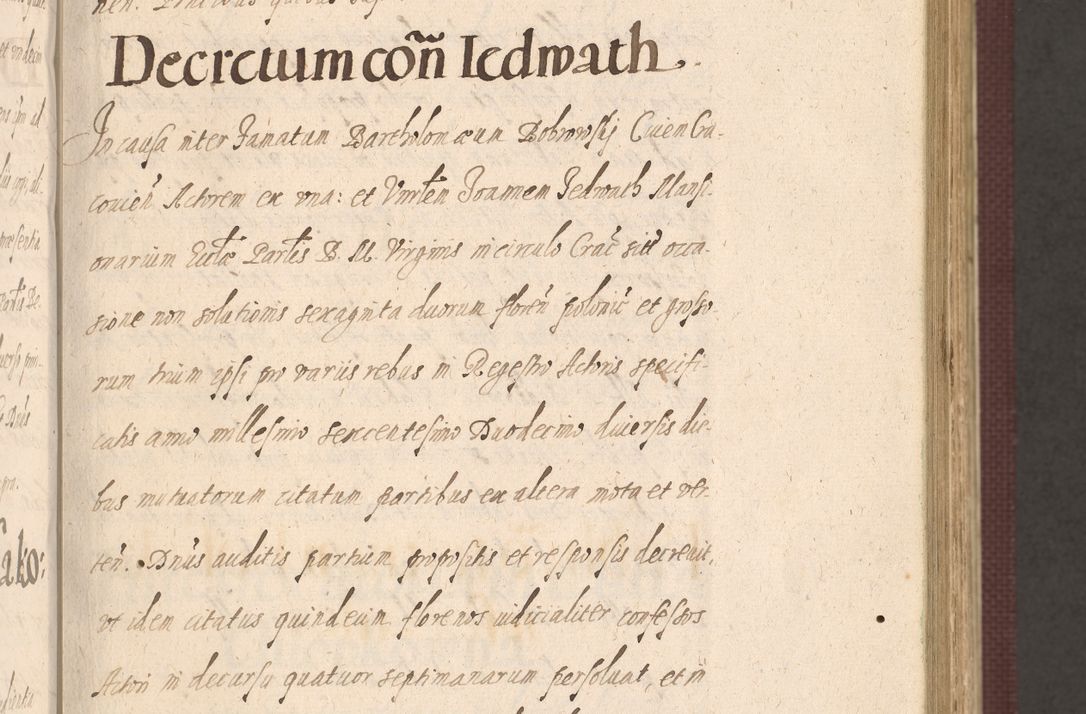 Decretum con̄ Iedwath.
In causa inter Famatum Bartholomæum Bobrowsky Civem Cra-
covień Actorem ex vna: et Vnrl͠em Joannem Jedwath Mansi-
onarium Eccl͠æ Parl͠is B. M. Virginis in circulo Crac̄ sitæ occa-
sione non solutionis sexaginta duorum floreń polonic̄ et grosso-
rum trium ipsi pro variis rebus in Regestro Actoris specifi-
catis anno millesimo sexcentesimo Duodecimo diversis die-
bus mutuatorum citatum partibus ex altera mota et ver-
teń. Dńus auditis partium propositis et responsis decrevit,
vt idem citatus quindecim florenos iudicialiter confessos
Actori in decursu quatuor septimanarum persoluat, et in